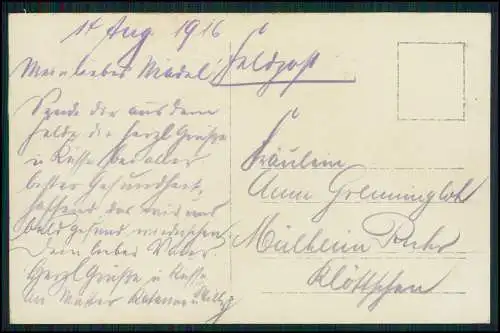 14 Aug 1916
Mein liebes Mädel!
Feldpost
Sende dir aus dem
Felde die herzl Grüße
u Küsse bei aller
bester Gesundheit,
hoffend das wir uns
bald gesund wiedersehen
Dein lieber Vater.
Herzl Grüße u Küsse
an Mutter u
Fräulein
Anna
Mülheim Ruhr
Klöttschen